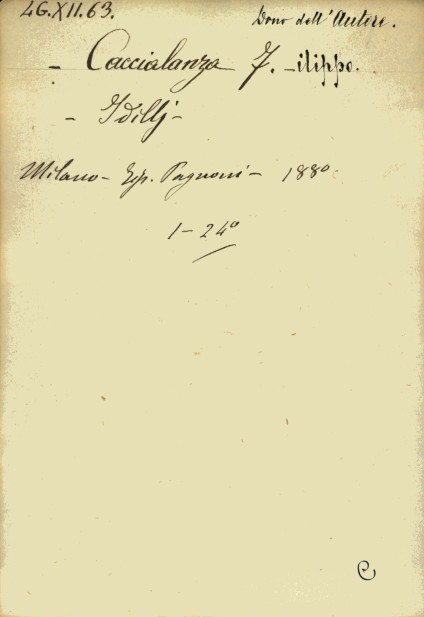 LG.XII.63. Dono dell'Autore.
- Caccialanza F. -ilippo.
- Idillj -
Milano - Tip. Pagnoni - 1880.
1 - 24°
C